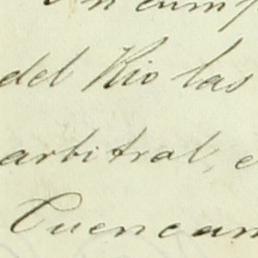 En cump
del Rio las
arbitral, e
Cuencam